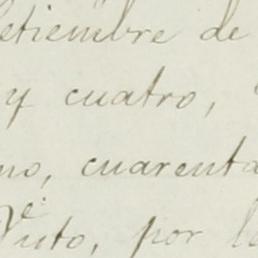 setiembre de
y cuatro,
no, cuarenta
por